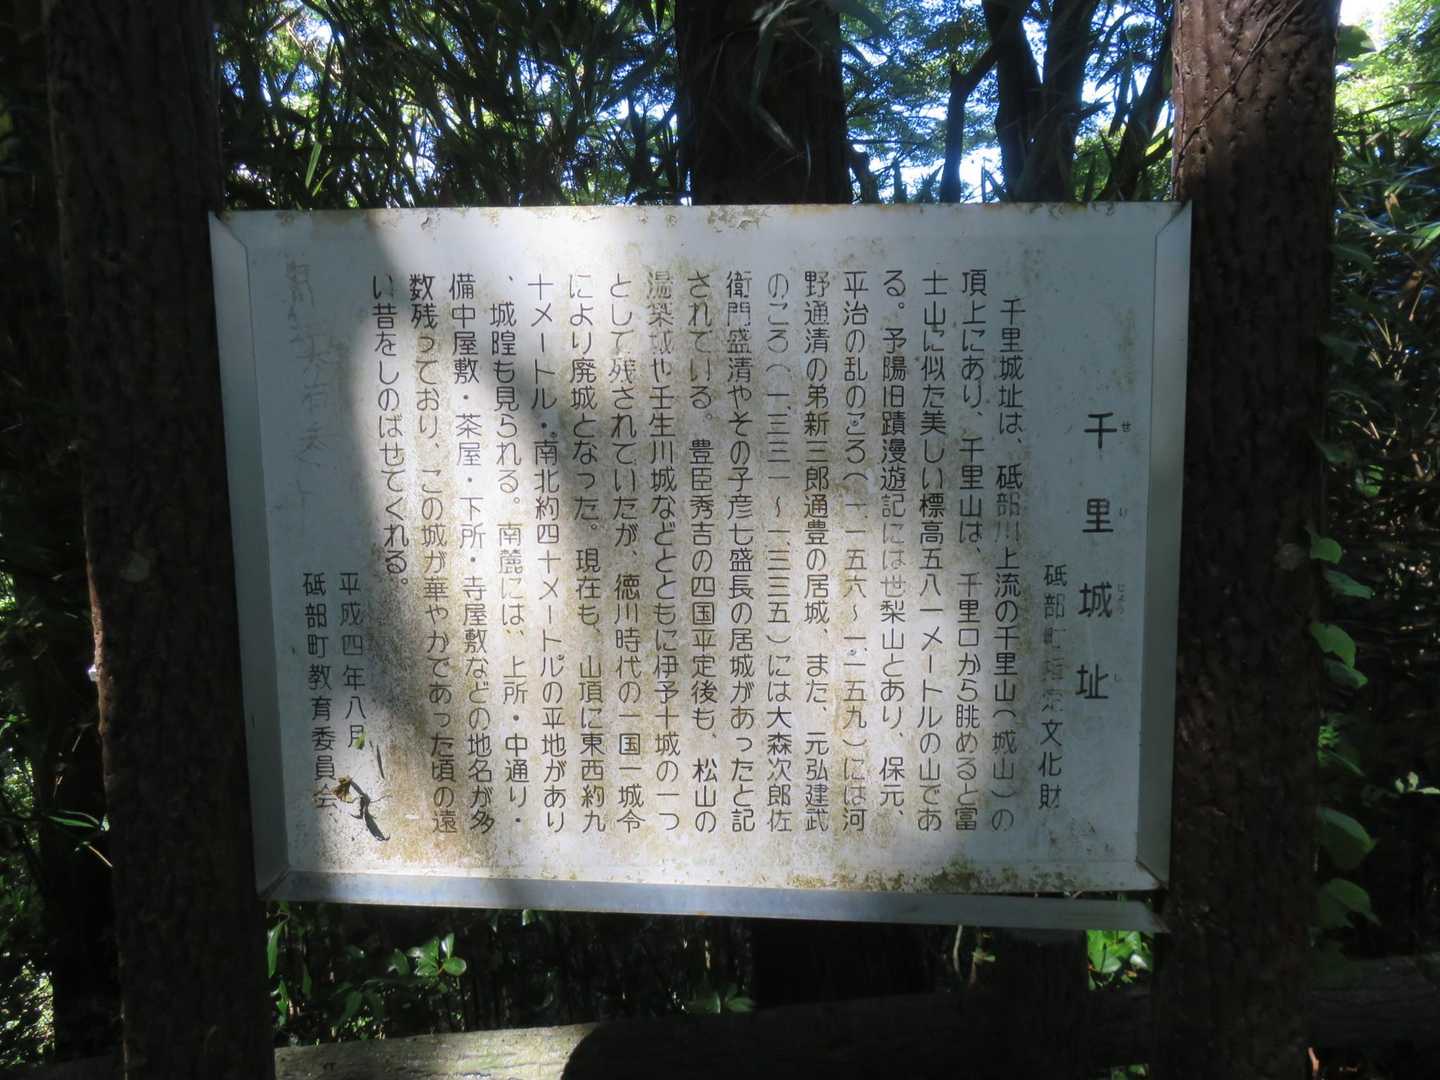 千里城址
せりじょうし
砥部町指定文化財
千里城址は、砥部川上流の千里山(城山)の
頂上にあり、千里山は、千里口から眺めると富
士山に似た美しい標高五八一メートルの山であ
る。予陽旧蹟漫遊記には世梨山とあり、保元、
平治の乱のころ(一、一五六〜一、一五九)には河
野通清の弟新三郎通豊の居城、また、元弘建武
のころ(一、三三一〜一、三三五)には大森次郎佐
衛門盛清やその子彦七盛長の居城があったと記
されている。豊臣秀吉の四国平定後も、松山の
湯築城や壬生川城などとともに伊予十城の一つ
として残されていたが、徳川時代の一国一城令
により廃城となった。現在も、山頂に東西約九
十メートル・南北約四十メートルの平地があり
、城隍も見られる。南麓には、上所・中通り・
備中屋敷・茶屋・下所・寺屋敷などの地名が多
数残っており、この城が華やかであった頃の遠
い昔をしのばせてくれる。
平成四年八月
砥部町教育委員会